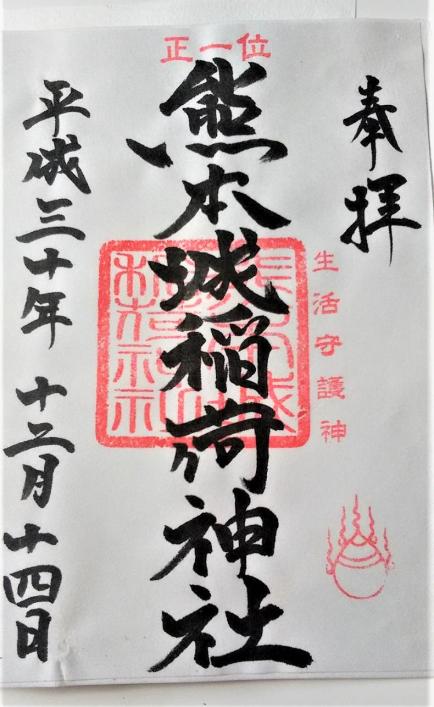 奉拝
生活守護神
正一位
熊本城稲荷神社
平成三十年十二月十四日